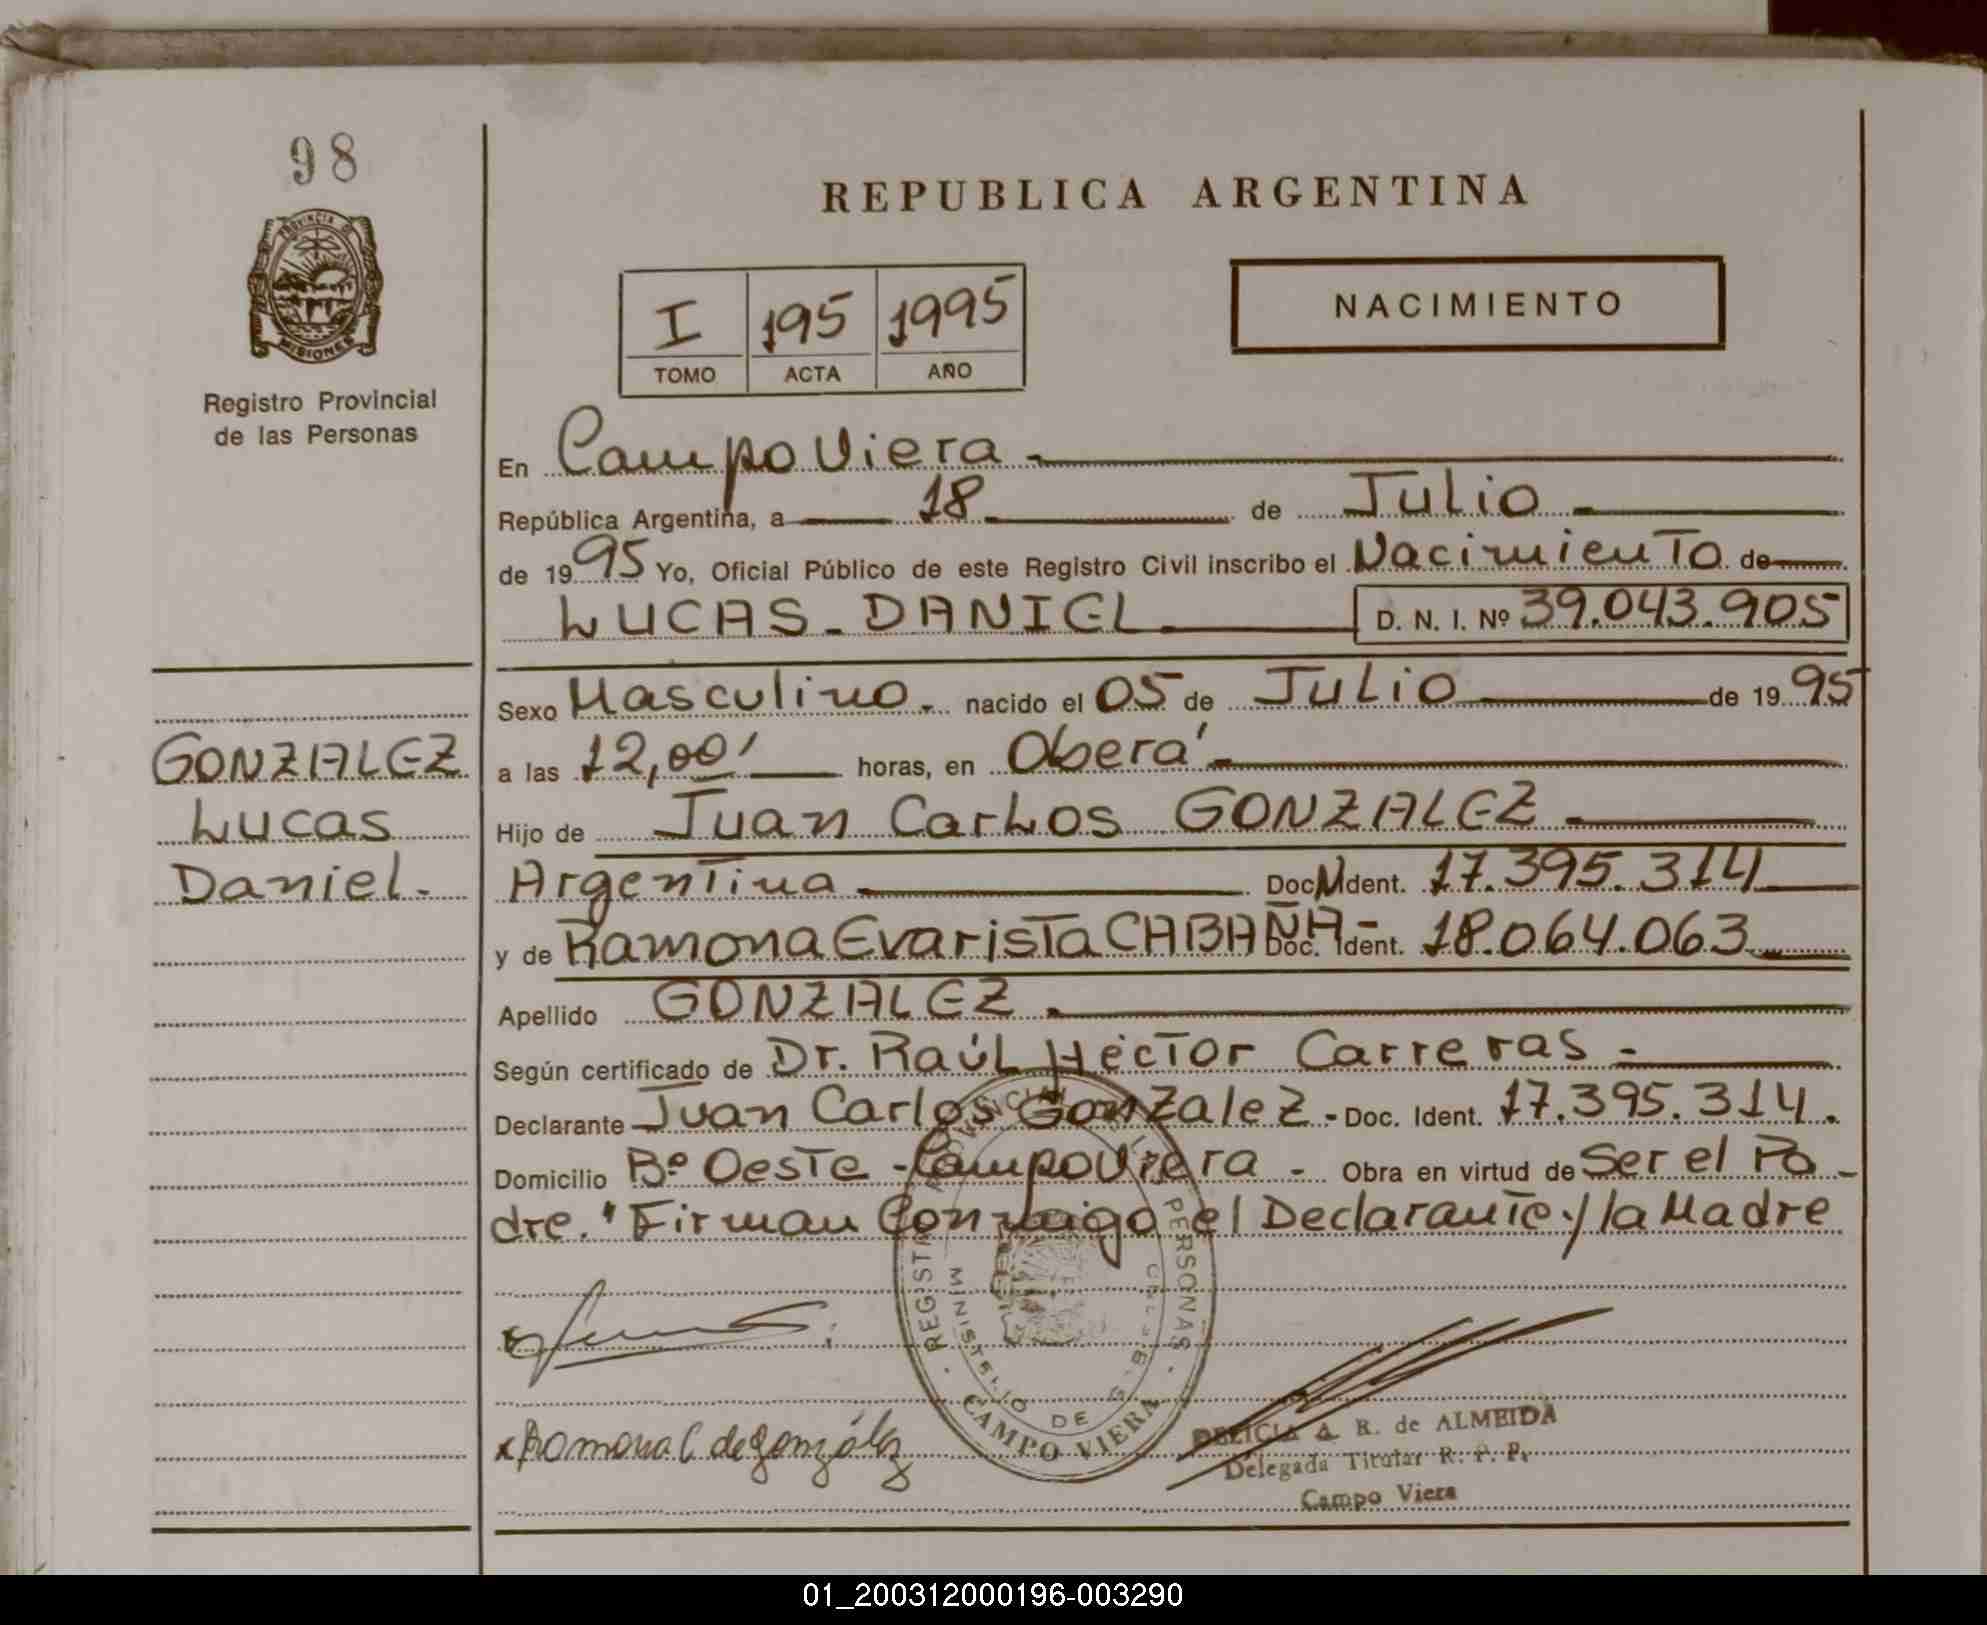 98
PROVINCIA DE
MISIONES
Registro Provincial
de las Personas
GONZALEZ
Lucas
Daniel.-
REPUBLICA ARGENTINA
I 195 1995
TOMO ACTA AÑO
NACIMIENTO
En Campo Viera.-
República Argentina, a 18 de Julio.-
de 1995 Yo, Oficial Público de este Registro Civil inscribo el Nacimiento de
LUCAS DANIEL D. N. I. Nº 39.043.905
Sexo Masculino.- nacido el 05 de Julio de 1995
a las 12,00' horas, en Oberá.-
Hijo de Juan Carlos GONZALEZ
Argentina Doc. Ident. 17.395.314
y de Ramona Evarista CABAÑA- Doc. Ident. 18.064.063
Apellido GONZALEZ.-
Según certificado de Dr. Raúl Héctor Carreras.-
Declarante Juan Carlos Gonzalez.- Doc. Ident. 17.395.314.
Domicilio Bº Oeste - Campo Viera.- Obra en virtud de Ser el Pa-
dre." Firman Conmigo el Declarante y la Madre
REGISTRO PROVINCIAL DE LAS PERSONAS
MINISTERIO DE
CAMPO VIERA
Ramona C de González
DELICIA A. R. de ALMEIDA
Delegada Titular R. P. P.
Campo Viera
01_200312000196-003290